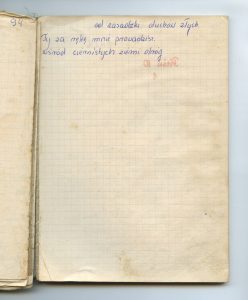 94
od zasadzki duchów złych.
Ty za rękę mnie prowadzisz.
wśród ciernistych ziemi dróg